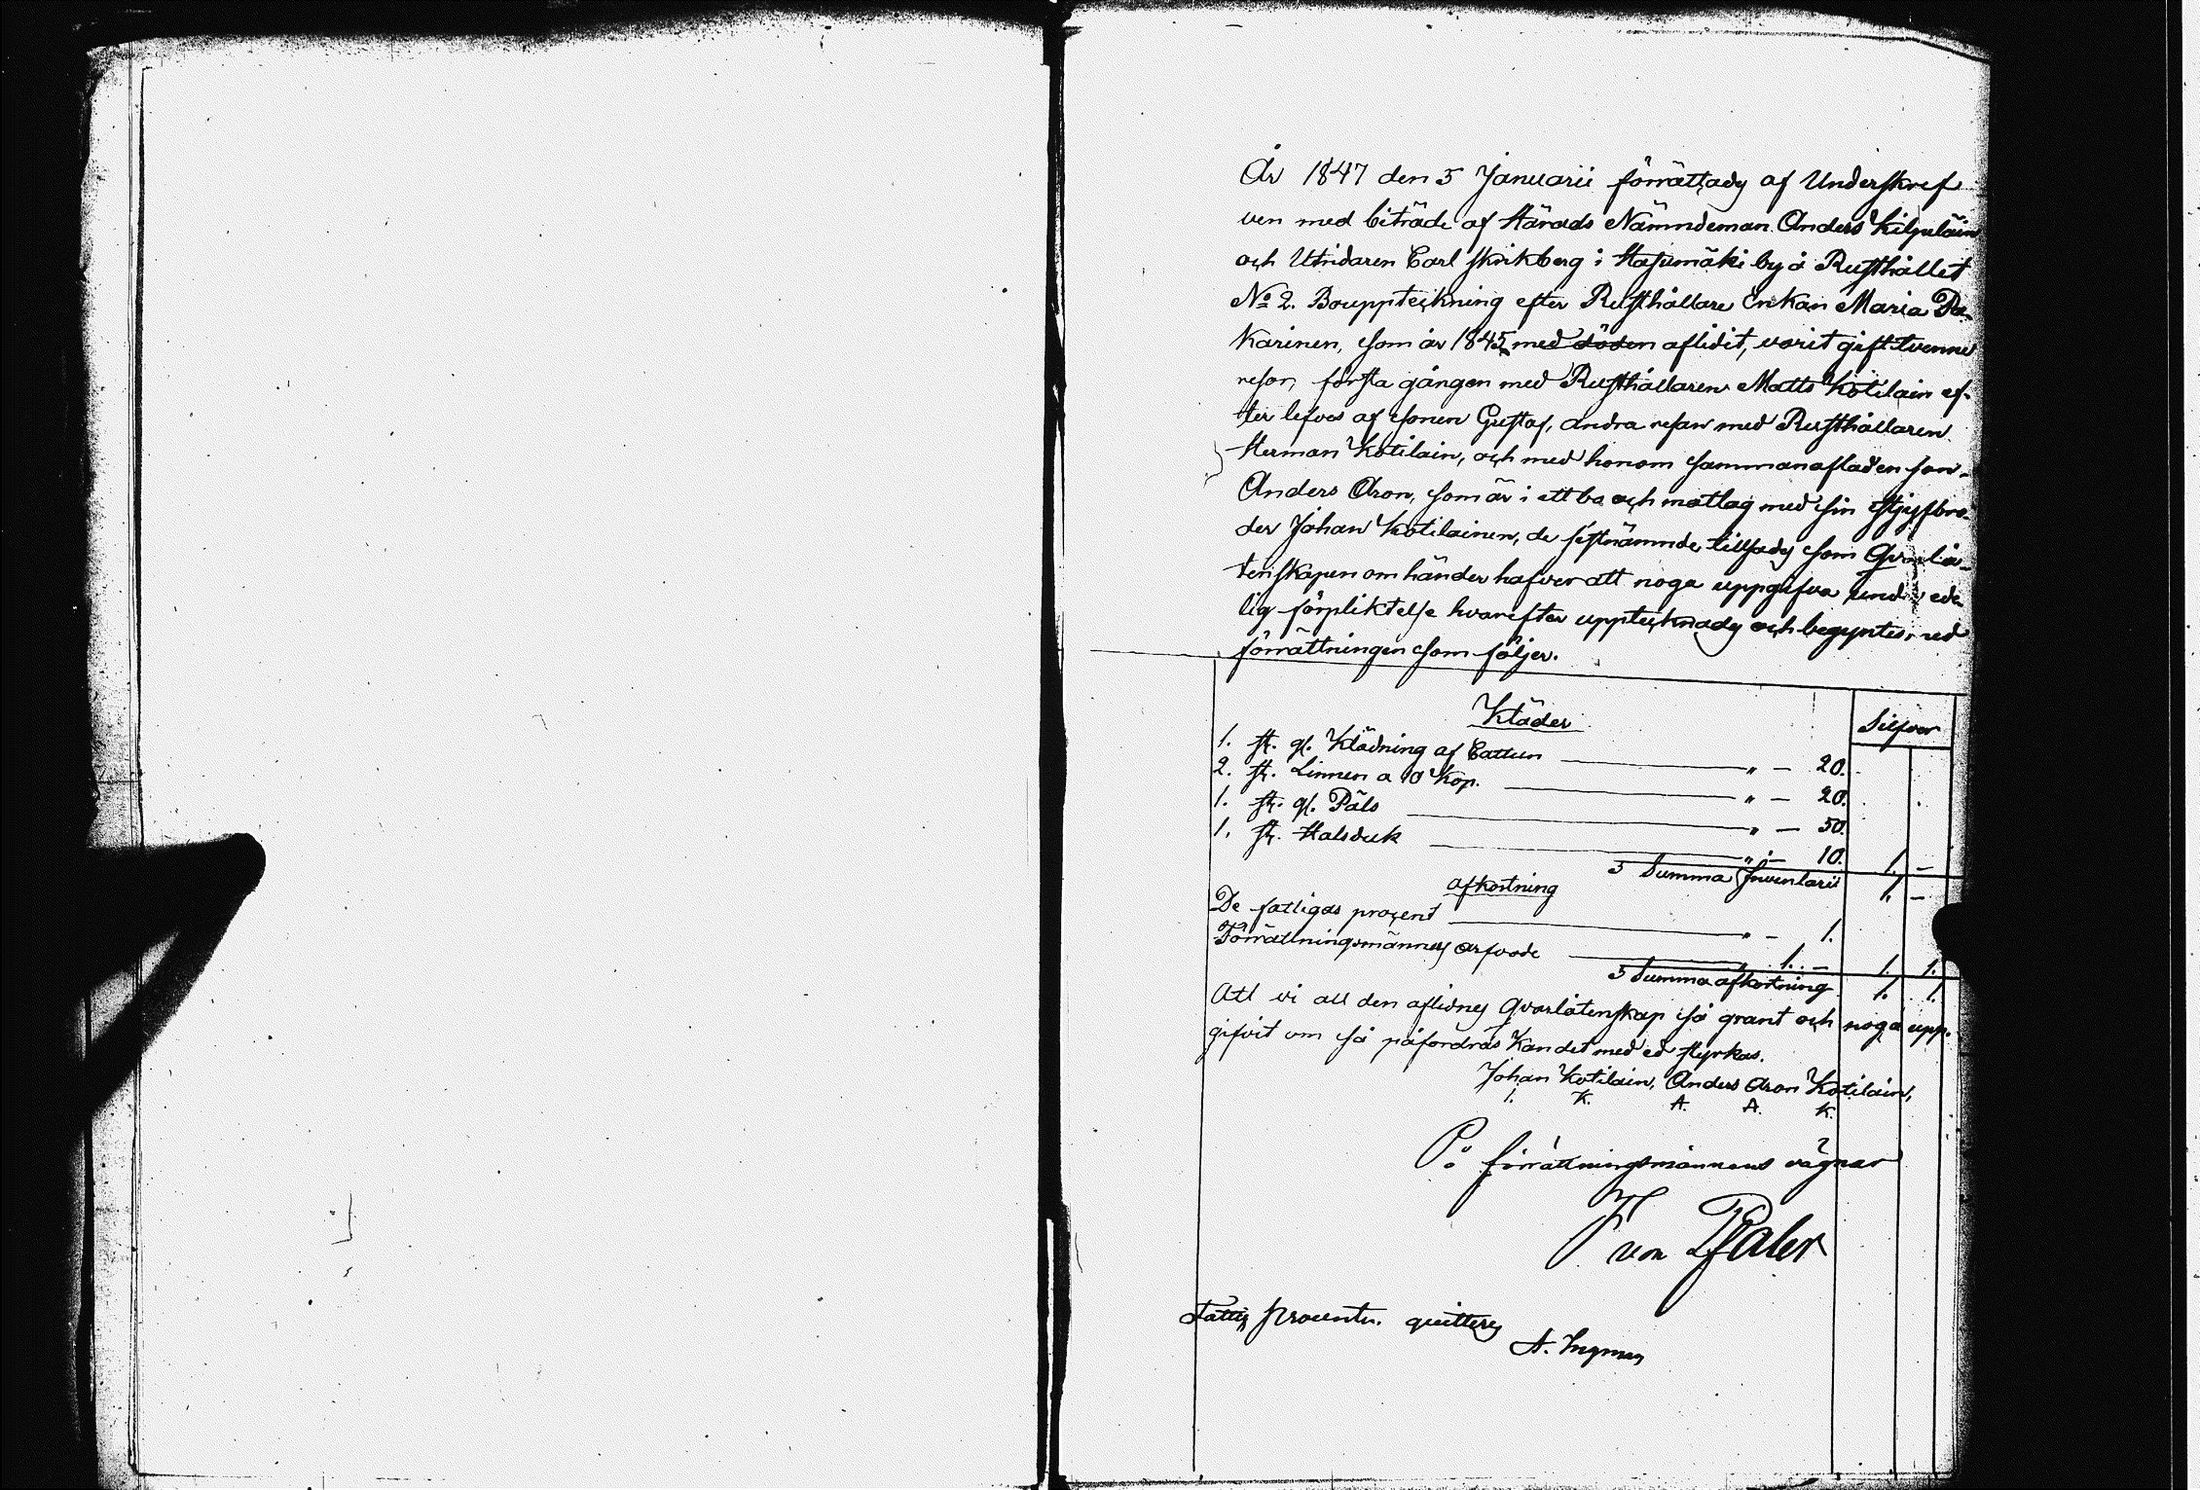 År 1847 den 5 Januarii förrättades af Underskref
ven med biträde af Härads Nämndeman Anders Kilpeläin
och Utridaren Carl Skrikberg i Hasumäki by å Rusthållet
No 2. Bouppteckning efter Rusthållare Enkan Maria Pa-
karinen, som år 1845 med döden aflidit, varit gift tvenne
resor, första gången med Rusthållaren Matts Kotilain ef-
ter lefves af sonen Gustaf, andra resan med Rusthållaren
Herman Kotilain, och med honom sammanaflad en son
Anders Aron, som är i ett bo och matlag med sin styfbro-
der Johan Kotilainen, de sistnämnde tillsades som Qvarlå-
tenskapen om händer hafver att noga uppgifva under ede-
lig förpliktelse hvarefter upptecknades och begyntes, ved
förrättningen som följer.
Kläder
Silfver
1. st. gl. Klädning af Cattun — " — 20.
2. st. Linnen a 10 Kop. — " — 20.
1. st. gl. Päls — " — 50.
1. st. Halsduk — " — 10. 1. —
Summa Inventarii 1. —
afkortning
De fattigas procent — " — 1.
Förrättningsmännens arfvode — " 1. — 1. 1.
Summa afkortning 1. 1.
Att vi all den aflidnes Qvarlåtenskap så grant och noga upp-
gifvit om så påfordras kan det med ed styrkas.
Johan Kotilain, Anders Aron Kotilain,
I. K. A. A. K.
På förrättningsmännens vägnar
F von Pfaler
Fattig procenten quitteras
A. Ingman